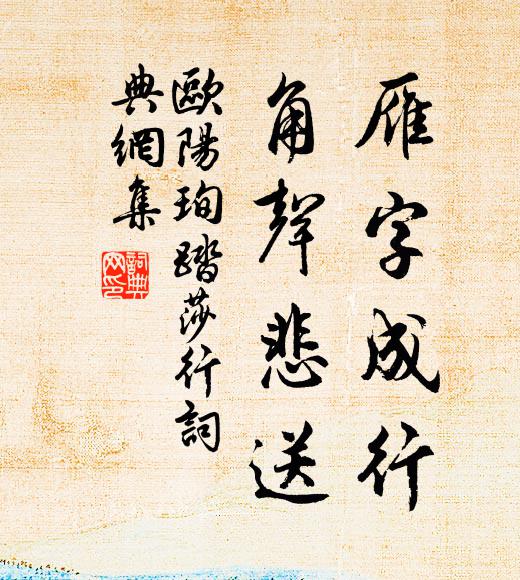 雁字成行
角聲悲送
歐陽珣踏莎行詞
典網集
詞典網印